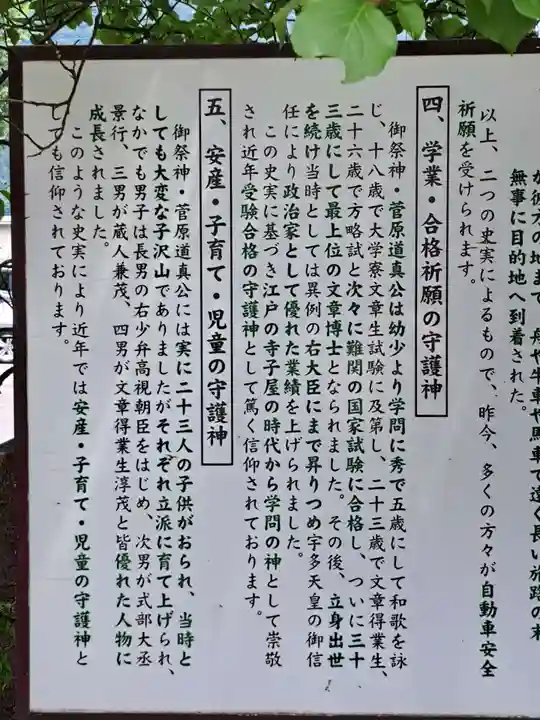 が彼方の地まで、舟や牛車や馬車で遠く長い旅路の末
無事に目的地へ到着された。
以上、二つの史実によるもので、昨今、多くの方々が自動車安全
祈願を受けられます。
四、学業・合格祈願の守護神
御祭神・菅原道真公は幼少より学問に秀で五歳にして和歌を詠
じ、十八歳で大学寮文章生試験に及第し、二十三歳で文章得業生、
二十六歳で方略試と次々に難関の国家試験に合格し、ついに三十
三歳にして最上位の文章博士となられました。その後、立身出世
を続け当時としては異例の右大臣にまで昇りつめ宇多天皇の御信
任により政治家として優れた業績を上げられました。
この史実に基づき江戸の寺子屋の時代から学問の神として崇敬
され近年受験合格の守護神として篤く信仰されております。
五、安産・子育て・児童の守護神
御祭神・菅原道真公には実に二十三人の子供がおられ、当時と
しても大変な子沢山でありましたがそれぞれ立派に育て上げられ、
なかでも男子は長男の右少弁高視朝臣をはじめ、次男が式部大丞
景行、三男が蔵人兼茂、四男が文章得業生淳茂と皆優れた人物に
成長されました。
このような史実により近年では安産・子育て・児童の守護神と
しても信仰されております。